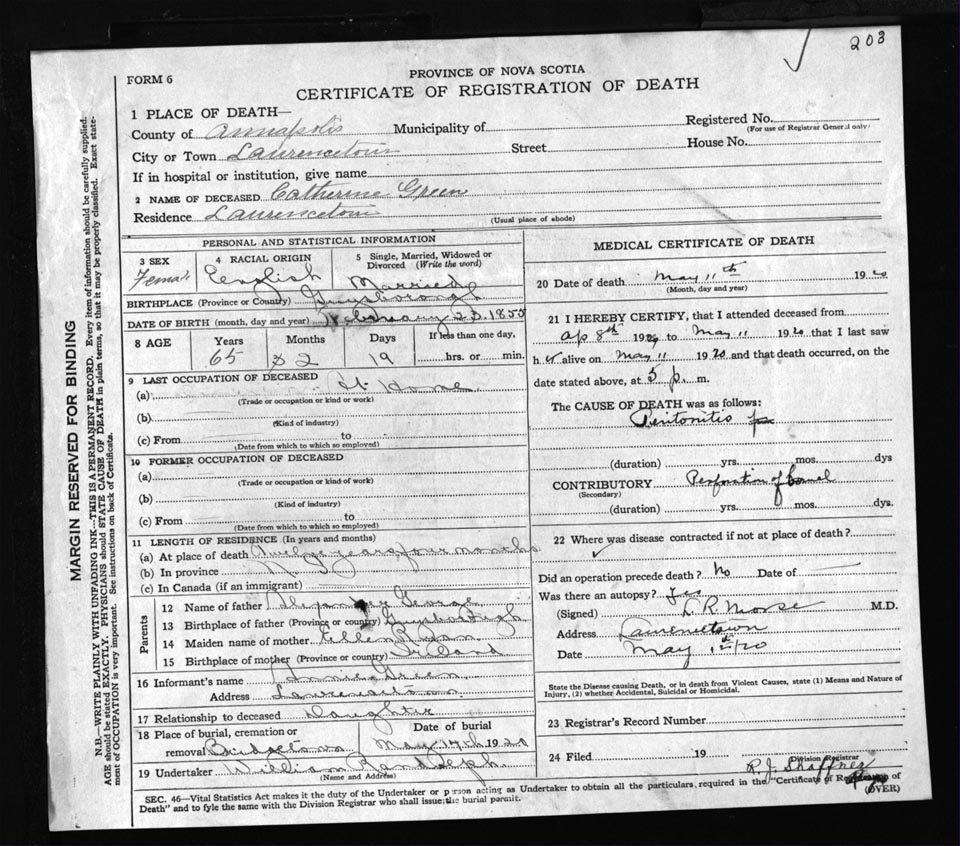 203
PROVINCE OF NOVA SCOTIA
FORM 6
CERTIFICATE OF REGISTRATION OF DEATH
1 PLACE OF DEATH—
County of Annapolis Municipality of Registered No.
(For use of Registrar General only)
City or Town Lawrencetown Street House No.
If in hospital or institution, give name
2 NAME OF DECEASED Catherine Green
Residence Lawrencetown
(Usual place of abode)
PERSONAL AND STATISTICAL INFORMATION
3 SEX 4 RACIAL ORIGIN 5 Single, Married, Widowed or Divorced (Write the word)
Female English Married
BIRTHPLACE (Province or Country) Guysborough
DATE OF BIRTH (month, day and year) February 23. 1855
8 AGE Years Months Days If less than one day,
65 2 19 hrs. or min.
9 LAST OCCUPATION OF DECEASED
(a) At Home
(Trade or occupation or kind or work)
(b)
(Kind of industry)
(c) From to
(Date from which to which so employed)
10 FORMER OCCUPATION OF DECEASED
(a)
(Trade or occupation or kind of work)
(b)
(Kind of industry)
(c) From to
(Date from which to which so employed)
11 LENGTH OF RESIDENCE (In years and months)
(a) At place of death years four months
(b) In province
(c) In Canada (if an immigrant)
Parents
12 Name of father Alexander George
13 Birthplace of father (Province or country) Guysborough
14 Maiden name of mother Ellen Ryan
15 Birthplace of mother (Province or country) Ireland
16 Informant's name Annie Green
Address Lawrencetown
17 Relationship to deceased Daughter
18 Place of burial, cremation or removal Bridgetown
Date of burial May 14th 1920
19 Undertaker William Randolph
(Name and Address)
MEDICAL CERTIFICATE OF DEATH
20 Date of death May 11th 1920
(Month, day and year)
21 I HEREBY CERTIFY, that I attended deceased from
Ap 8th 1920 to May 11 1920 that I last saw
her alive on May 11 1920 and that death occurred, on the
date stated above, at 5 p. m.
The CAUSE OF DEATH was as follows:
Peritonitis from
(duration) yrs. mos. dys
CONTRIBUTORY Perforation of bowel
(Secondary)
(duration) yrs. mos. dys.
22 Where was disease contracted if not at place of death?
Did an operation precede death? No Date of
Was there an autopsy? Yes
(Signed) L R Morse M.D.
Address Lawrencetown
Date May 12th/20
State the Disease causing Death, or in death from Violent Causes, state (1) Means and Nature of
Injury, (2) whether Accidental, Suicidal or Homicidal.
23 Registrar's Record Number
24 Filed 19
Division Registrar
R. J. Shaffner
SEC. 46—Vital Statistics Act makes it the duty of the Undertaker or person acting as Undertaker to obtain all the particulars required in the "Certificate of Registration of
Death" and to fyle the same with the Division Registrar who shall issue the burial permit.
(OVER)
MARGIN RESERVED FOR BINDING
N.B.—WRITE PLAINLY WITH UNFADING INK—THIS IS A PERMANENT RECORD. Every item of information should be carefully supplied.
AGE should be stated EXACTLY. PHYSICIANS should STATE CAUSE OF DEATH in plain terms, so that it may be properly classified. Exact state-
ment of OCCUPATION is very important. See instructions on back of Certificate.